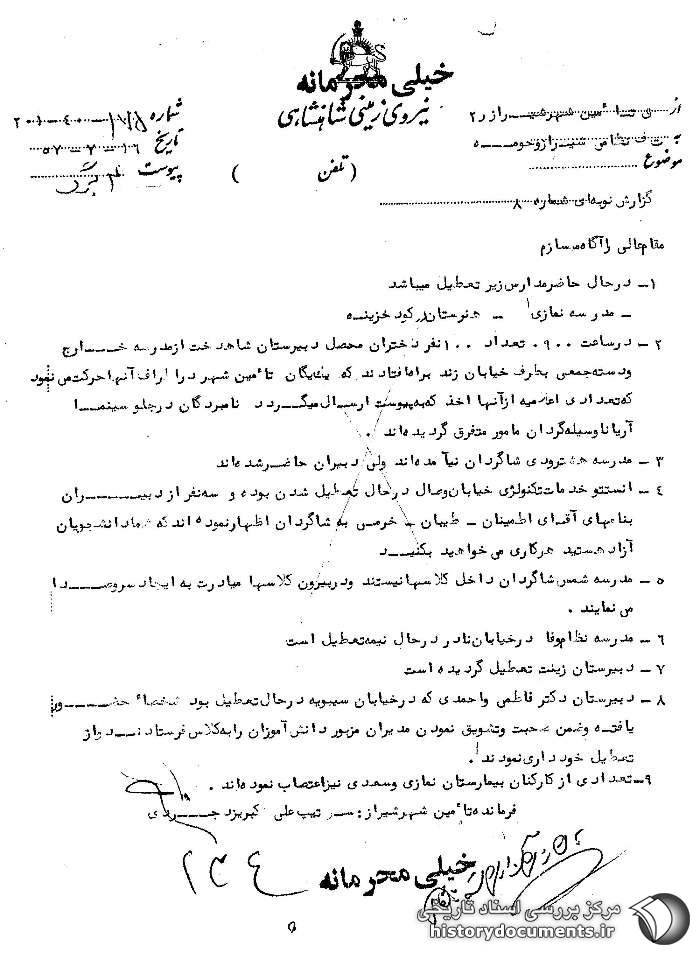 خیلی محرمانه
نیروی زمینی شاهنشاهی
از تأمین شهر شیراز ۲ر
به ف نظامی شیراز و حومه
موضوع
شماره ۲۰۱-۴۰-
تاریخ ۱۶-۷-۵۷
پیوست برگ
( تلفن )
گزارش نوبه‌ای شماره ۸
مقام عالی را آگاه میسازم
۱- در حال حاضر مدارس زیر تعطیل میباشد
- مدرسه نمازی - هنرستان رکود خزینه
۲- در ساعت ۰۹۰۰ تعداد ۱۰۰ نفر دختران محصل دبیرستان شاهدخت از مدرسه خارج
و دسته جمعی بطرف خیابان زند براه افتادند که یگان تأمین شهر در اطراف آنها حرکت می نمود
که تعدادی اعلامیه از آنها اخذ که به پیوست ارسال میگردد نامبردگان در جلو سینما
آریانا وسیله گردان مامور متفرق گردیده‌اند .
۳- مدرسه هشترودی شاگردان نیآمده‌اند ولی دبیران حاضر شده‌اند
۴- انستتو خدمات تکنولژی خیابان وصال در حال تعطیل شدن بوده و سه نفر از دبیران
بنامهای آقدای اطمینان - طیبان - خرمی به شاگردان اظهار نموده‌اند که شما دانشجویان
آزاد هستید هرکاری می خواهید بکنید
۵- مدرسه شمس شاگردان داخل کلاسها نیستند و در بیرون کلاسها مبادرت به ایجاد سروصدا
می نمایند .
۶- مدرسه نظام وفا در خیابان نادر در حال نیمه تعطیل است
۷- دبیرستان زینت تعطیل گردیده است
۸- دبیرستان دکتر فاطمی و احمدی که در خیابان سیبویه در حال تعطیل بود شخصاً حضور
یافته و ضمن صحبت و تشویق نمودن مدیران مزبور دانش آموزان را به کلاس فرستادند و از
تعطیل خودداری نمودند .
۹- تعدادی از کارکنان بیمارستان نمازی و سعدی نیز اعتصاب نموده‌اند .
فرمانده تأمین شهر شیراز : سرتیپ علی کبریزدجردی
خیلی محرمانه
۲۳۴
مرکز بررسی اسناد تاریخی
historydocuments.ir